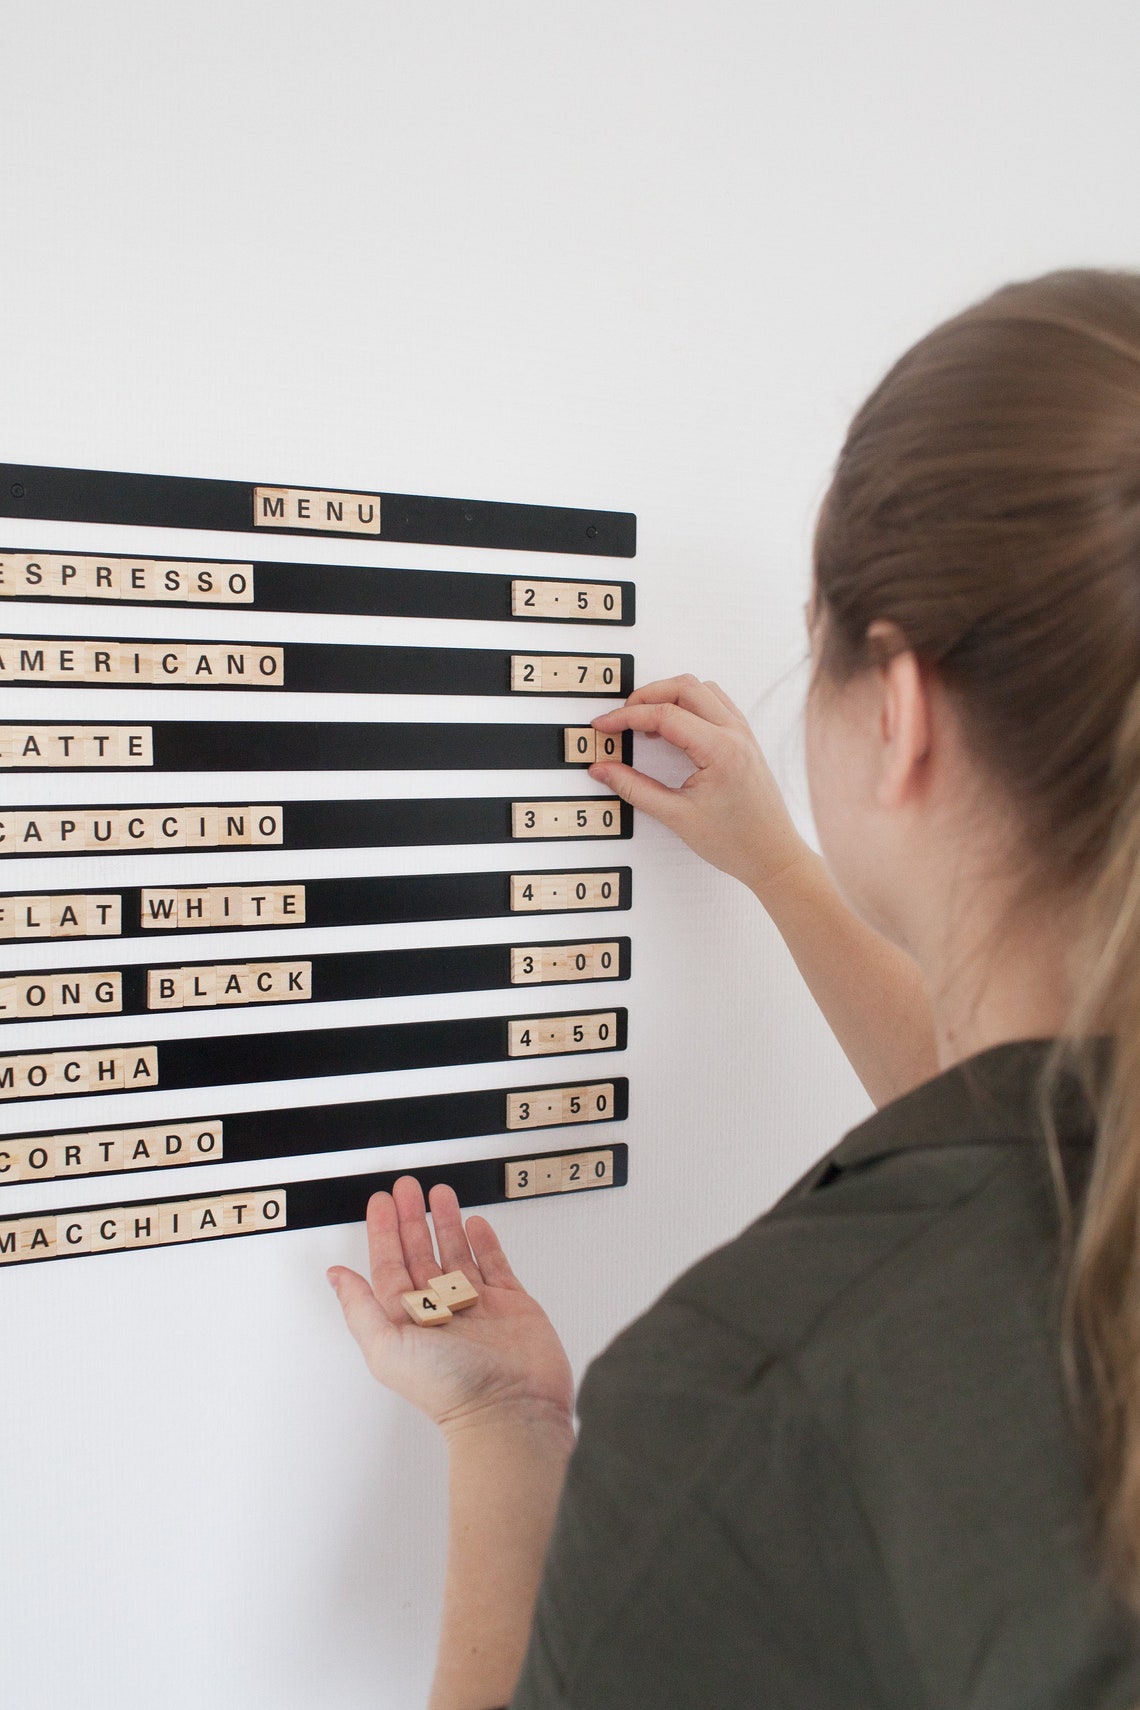 MENU
ESPRESSO 2.50
AMERICANO 2.70
LATTE 00
CAPUCCINO 3.50
FLAT WHITE 4.00
LONG BLACK 3.00
MOCHA 4.50
CORTADO 3.50
MACCHIATO 3.20
4 .